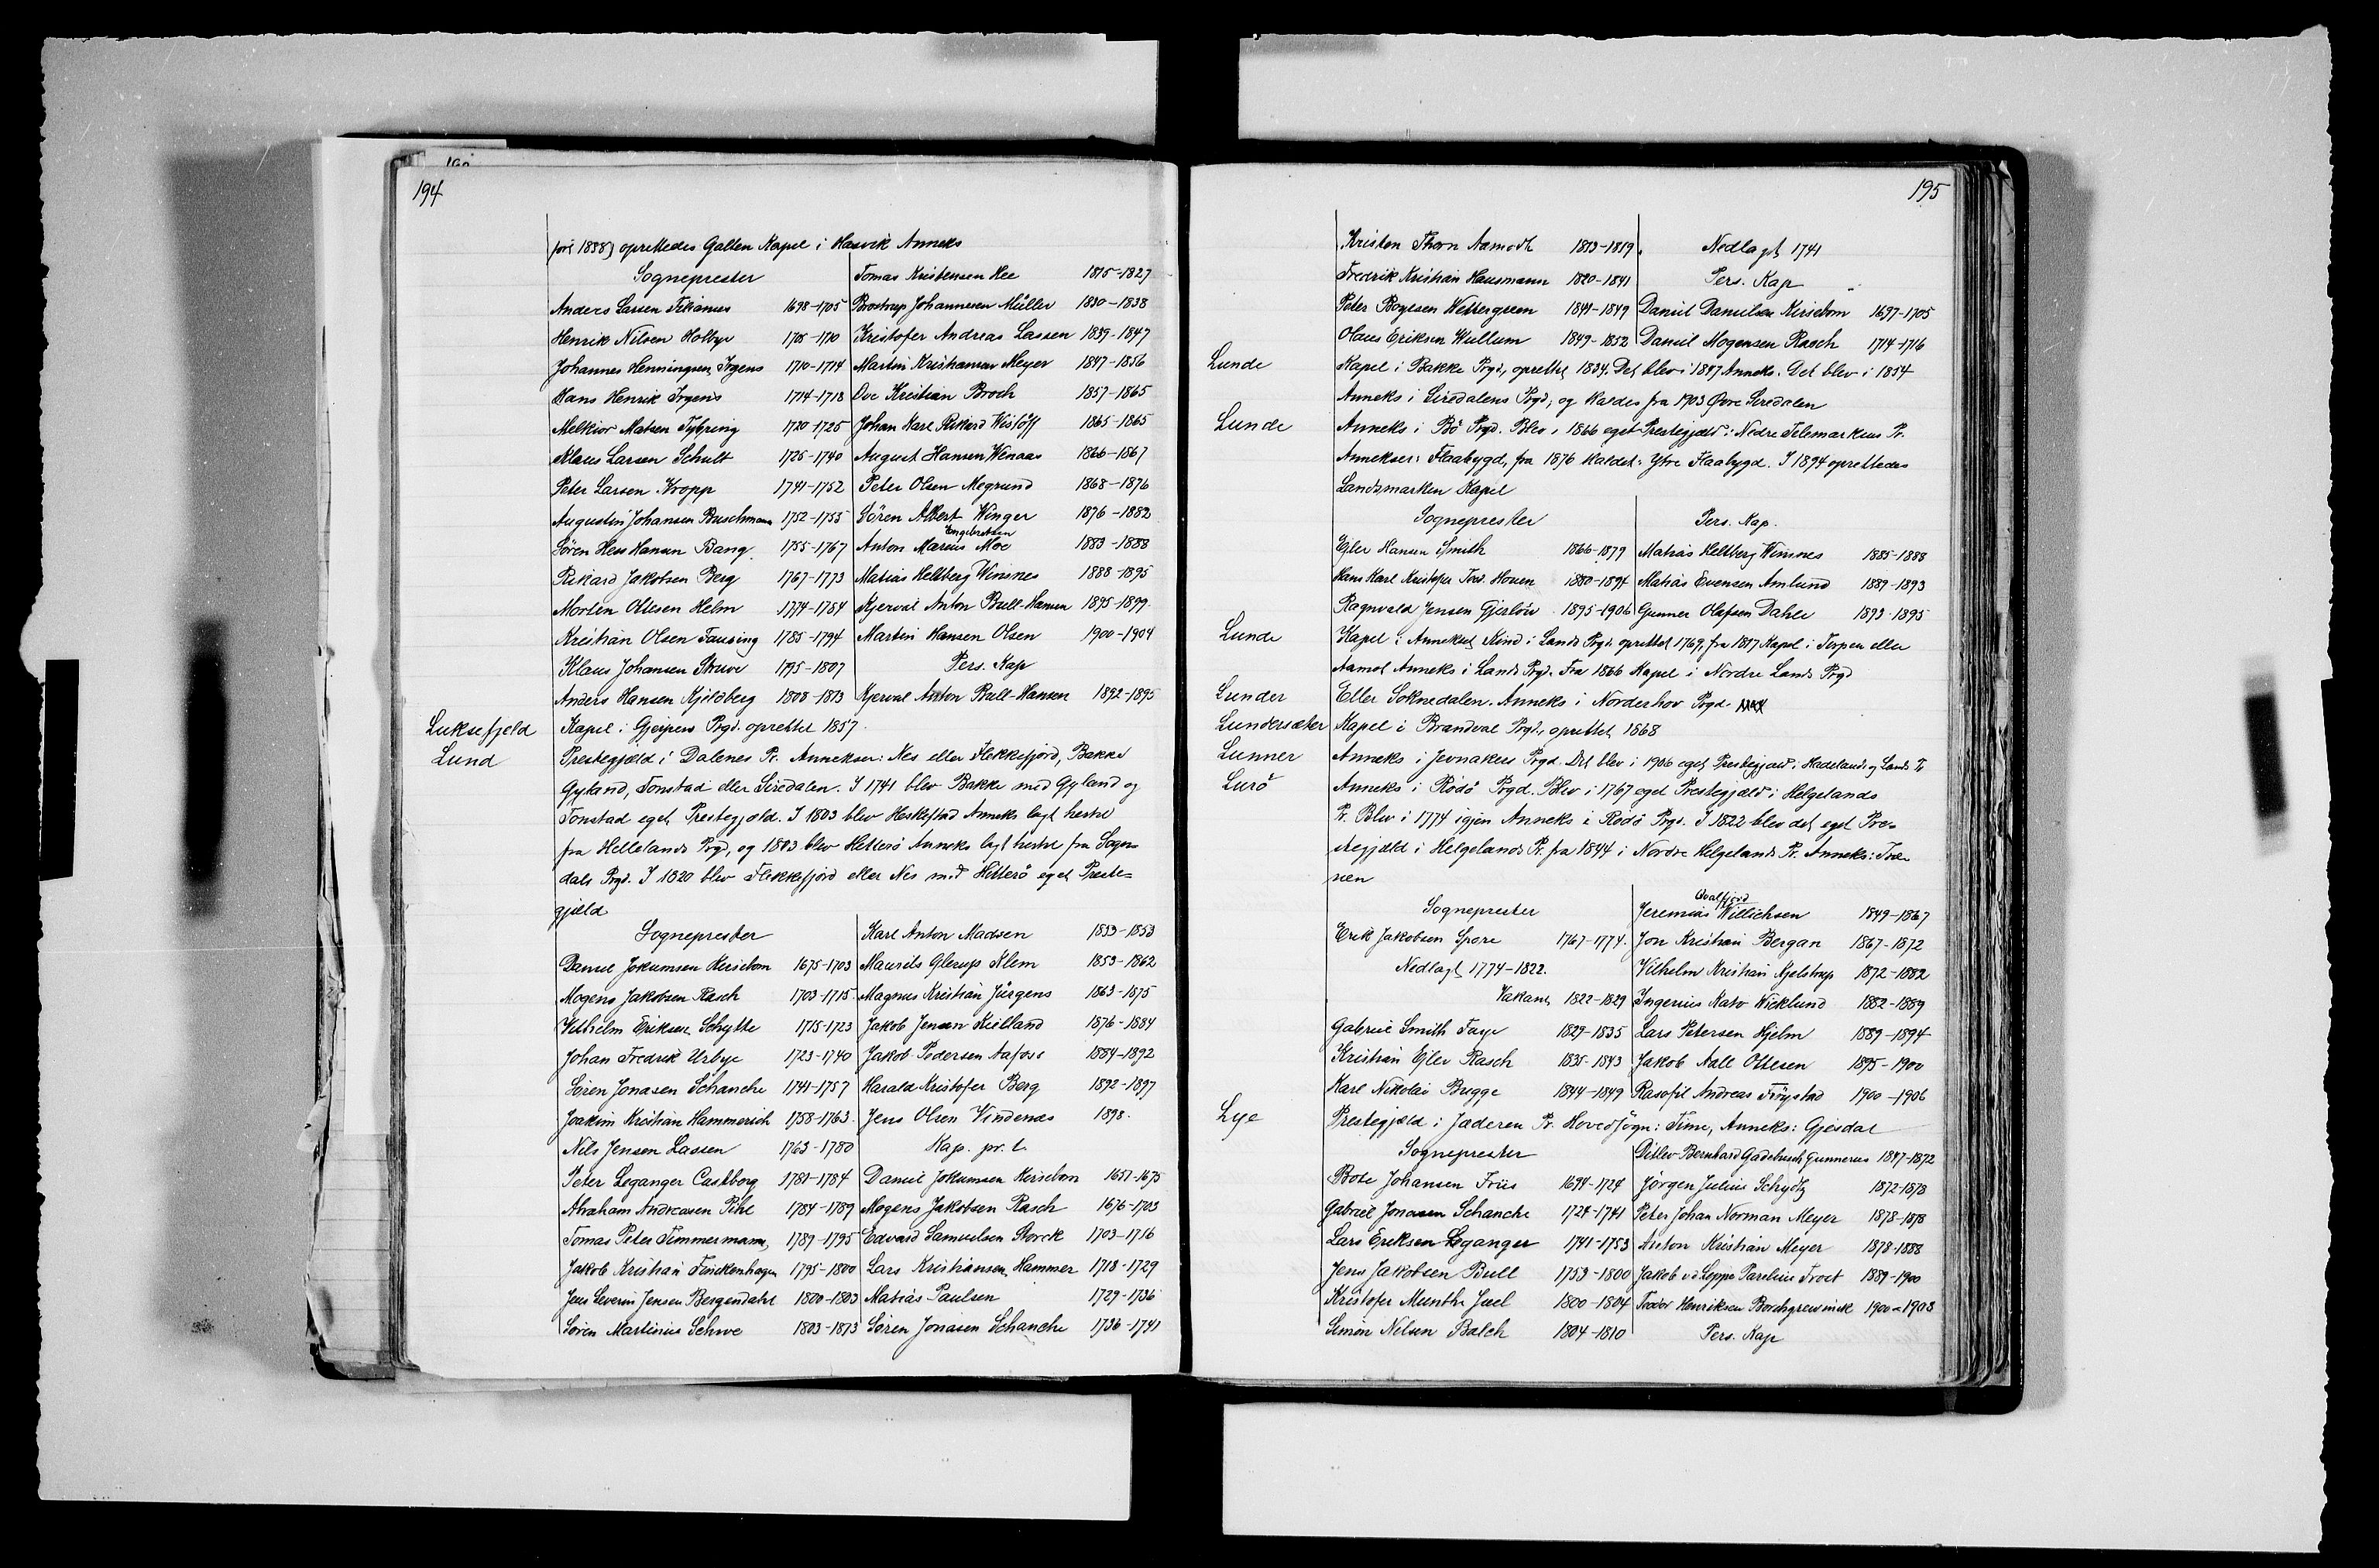 194
1888 oprettedes Galten Kapel i Hasvik Anneks
Sogneprester
Anders Larsen 1698-1705
Henrik Nilsen Holbye 1705-1710
Johannes Henningsen Irgens 1710-1714
Hans Henrik Irgens 1714-1718
Melkior Matsen Tybring 1720-1725
Klaus Larsen Schult 1725-1740
Peter Larsen Kropp 1741-1752
Augustin Johansen Buschmann 1752-1755
Sören Hess Hansen Bang 1755-1767
Rikard Jakobsen Berg 1767-1773
Morten Ottesen Helm 1774-1784
Kristian Olsen Fausing 1785-1794
Klaus Johansen Struve 1795-1807
Anders Hansen Kjeldberg 1808-1813
Tomas Kristensen Kee 1815-1827
Brostrup Johannesen Müller 1830-1838
Kristofer Andreas Lassen 1839-1847
Martin Kristiansen Meyer 1847-1856
Ove Kristian Broch 1857-1865
Johan Karl Rikard Wislöff 1865-1865
August Hansen Wenaas 1866-1867
Peter Olsen Megrund 1868-1876
Sören Albert Winger 1876-1882
Anton Marius Engebretsen Moe 1883-1888
Matias Heltberg Wimsnes 1888-1895
Kjerval Anton Bull-Hansen 1895-1899
Martin Hansen Olsen 1900-1904
Pers. Kap
Kjerval Anton Bull-Hansen 1892-1895
Luksefjeld Kapel i Gjerpens Prgd. oprettet 1857
Lund Prestegjæld i Dalenes Pr. Annekser: Nes eller Flekkefjord, Bakke
Gyland, Tonstad eller Siredalen. I 1741 blev Bakke med Gyland og
Tonstad eget Prestegjæld. I 1803 blev Heskestad Anneks lagt hertil
fra Hellelands Prgd, og 1803 blev Hitterö Anneks lagt hertil fra Sogn=
dals Prgd. I 1820 blev Flekkefjord eller Nes med Hitterö eget Preste=
gjæld
Sogneprester
Daniel Jokumsen Kirsebom 1675-1703
Mogens Jakobsen Rasch 1703-1715
Vilhelm Eriksen Schytte 1715-1723
Johan Fredrik Urbye 1723-1740
Sören Jonasen Schanche 1741-1757
Joakim Kristian Hammerich 1758-1763
Nils Jensen Lassen 1763-1780
Peter Leganger Castborg 1781-1784
Abraham Andreasen Pihl 1784-1789
Tomas Peter Timmermann 1789-1795
Jakob Kristian Finckenhagen 1795-1800
Jens Severin Jensen Bergendahl 1800-1803
Sören Martinius Schive 1803-1813
Karl Anton Madsen 1833-1853
Maurits Glerup Klem 1853-1862
Magnus Kristian Jürgens 1863-1875
Jakob Jensen Kielland 1876-1884
Jakob Pedersen Aafoss 1884-1892
Harald Kristofer Berg 1892-1897
Jens Olsen Vindenes 1898.
Kap. pr. l.
Daniel Jokumsen Kirsebom 1657-1675
Mogens Jakobsen Rasch 1676-1703
Edvard Samuelsen Storck 1703-1716
Lars Kristiansen Hammer 1718-1729
Matias Paulsen 1729-1736
Sören Jonasen Schanche 1736-1741
195
Kristen Thorn Aamodt 1813-1819
Fredrik Kristian Hausmann 1820-1841
Peter Boyesen Wettergreen 1841-1849
Olaus Eriksen Wullum 1849-1852
Nedlagt 1741
Pers. Kap
Daniel Danielsen Kirsebom 1697-1705
Daniel Mogensen Rasch 1714-1716
Lunde Kapel i Bakke Prgd, oprettet 1834. Det blev i 1847 Anneks. Det blev i 1854
Anneks i Siredalens Prgd, og kaldes fra 1903 Övre Siredalen
Lunde Anneks i Bö Prgd. Blev i 1866 eget Prestegjæld i Nedre Telemarkens Pr.
Annekser: Flaabygd, fra 1876 kaldet: Ytre Flaabygd. I 1894 oprettedes
Landsmarken Kapel
Sogneprester
Ejler Hansen Smith 1866-1879
Hans Karl Kristofer Hoven 1880-1894
Ragnvald Jensen Gjerlöw 1895-1906
Pers. Kap.
Matias Heltberg Wimsnes 1885-1888
Matias Evensen Amlund 1889-1893
Gunner Olafsen Dahle 1893-1895
Lunde Kapel i Annekset Kind i Lands Prgd. oprettet 1769, fra 1817 Kapel i Torpen eller
Aamot Anneks i Lands Prgd. Fra 1866 Kapel i Nordre Lands Prgd
Lunder Eller Soknedalen. Anneks i Norderhov Prgd.
Lundersæter Kapel i Brandval Prgd, oprettet 1868
Lunner Anneks i Jevnakers Prgd. Det blev i 1906 eget Prestegjæld i Hadeland og Lands Pr
Lurö Anneks i Rödö Prgd. Blev i 1767 eget Prestegjæld i Helgelands
Pr. Blev i 1774 igjen Anneks i Rödö Prgd. I 1822 blev det eget Pre=
stegjæld i Helgelands Pr. fra 1844 i Nordre Helgelands Pr. Anneks: Træ=
nen
Sogneprester
Erik Jakobsen Spore 1767-1774.
Nedlagt 1774-1822.
Vakant 1822-1829
Gabriel Smith Faye 1829-1835
Kristian Ejler Rasch 1835-1843
Karl Nikolai Bugge 1844-1849
Jeremias Qvalfjord Willichsen 1849-1867
Jon Kristian Bergan 1867-1872
Vilhelm Kristian Kjelstrup 1872-1882
Ingenius Kato Wicklund 1882-1889
Lars Petersen Hjelm 1889-1894
Jakob Aall Ottesen 1895-1900
Rasofil Andreas Fröystad 1900-1906
Lye Prestegjæld i Jæderen Pr. Hovedsogn: Time, Anneks: Gjesdal
Sogneprester
Bote Johansen Friis 1694-1724
Gabriel Jonasen Schanche 1724-1741
Lars Eriksen Leganger 1741-1753
Jens Jakobsen Bull 1753-1800
Kristofer Munthe Juel 1800-1804
Simon Nilsen Balch 1804-1810
Ditlev Bernhard Gadebusch Gunnerus 1847-1872
Jörgen Julius Schydtz 1872-1878
Peter Johan Norman Meyer 1878-1878
Anton Kristian Meyer 1878-1888
Jakob v.d. Lippe Parelius Frost 1889-1900
Teodor Henriksen Borchgrevinck 1900-1903
Pers. Kap